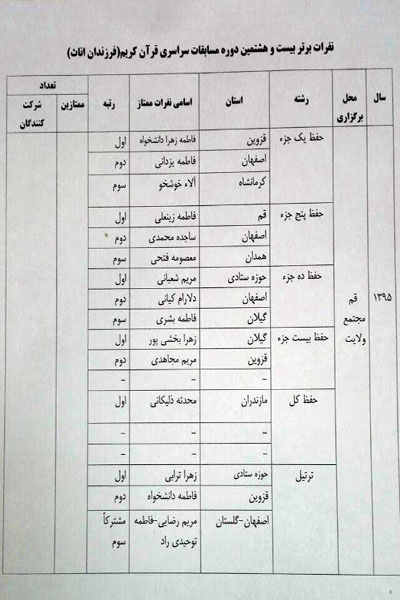 نفرات برتر بیست و هشتمین دوره مسابقات سراسری قرآن کریم(فرزندان اناث)
سال محل برگزاری رشته استان اسامی نفرات ممتاز رتبه تعداد
ممتازین شرکت کنندگان
۱۳۹۵ قم مجتمع ولایت
حفظ یک جزء قزوین فاطمه زهرا دانشخواه اول
اصفهان فاطمه یزدانی دوم
کرمانشاه آلاء خوشخو سوم
حفظ پنج جزء قم فاطمه زینعلی اول
اصفهان ساجده محمدی دوم
همدان معصومه فتحی سوم
حفظ ده جزء حوزه ستادی مریم شعبانی اول
اصفهان دلارام کیانی دوم
گیلان فاطمه بشری سوم
حفظ بیست جزء گیلان زهرا بخشی پور اول
قزوین مریم مجاهدی دوم
- - -
حفظ کل مازندران محدثه ذلیکانی اول
- - -
- - -
ترتیل حوزه ستادی زهرا ترابی اول
قزوین فاطمه دانشخواه دوم
اصفهان-گلستان مریم رضایی-فاطمه مشترکاً
توحیدی راد سوم